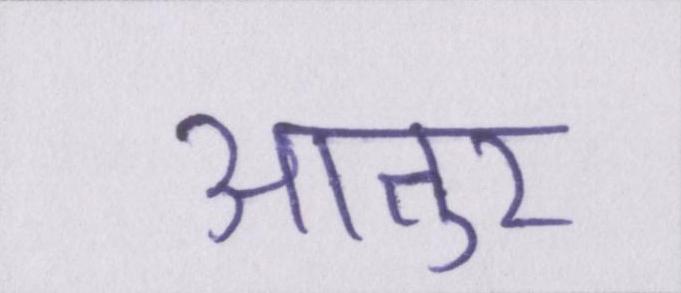 आतुर